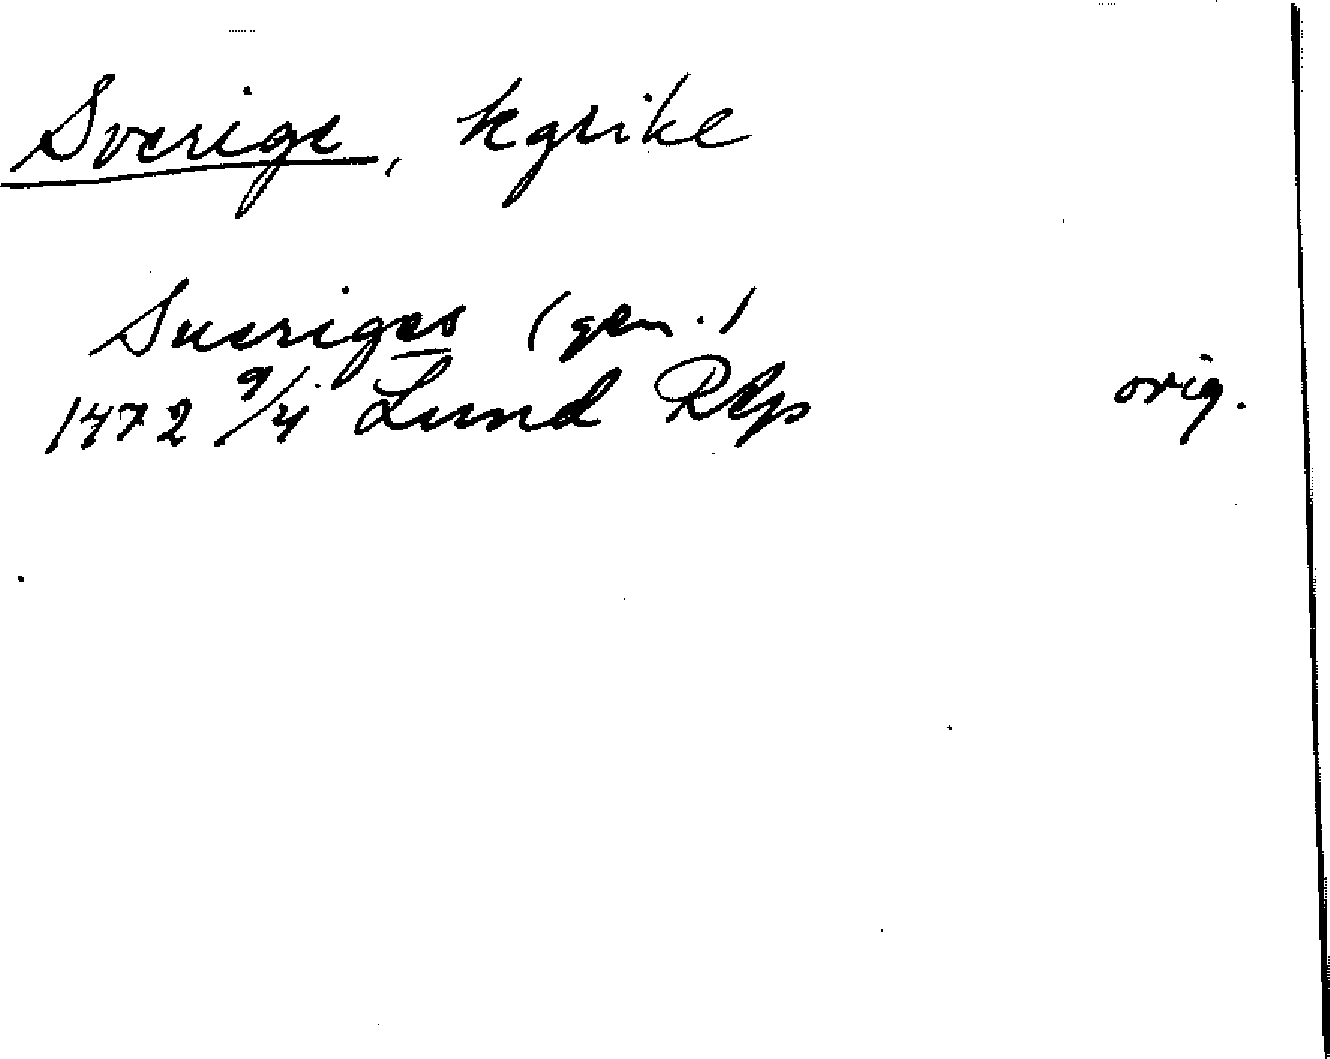 Sverige, kgrike
Sueriges (gen.)
1472 9/4 Lund RAp orig.